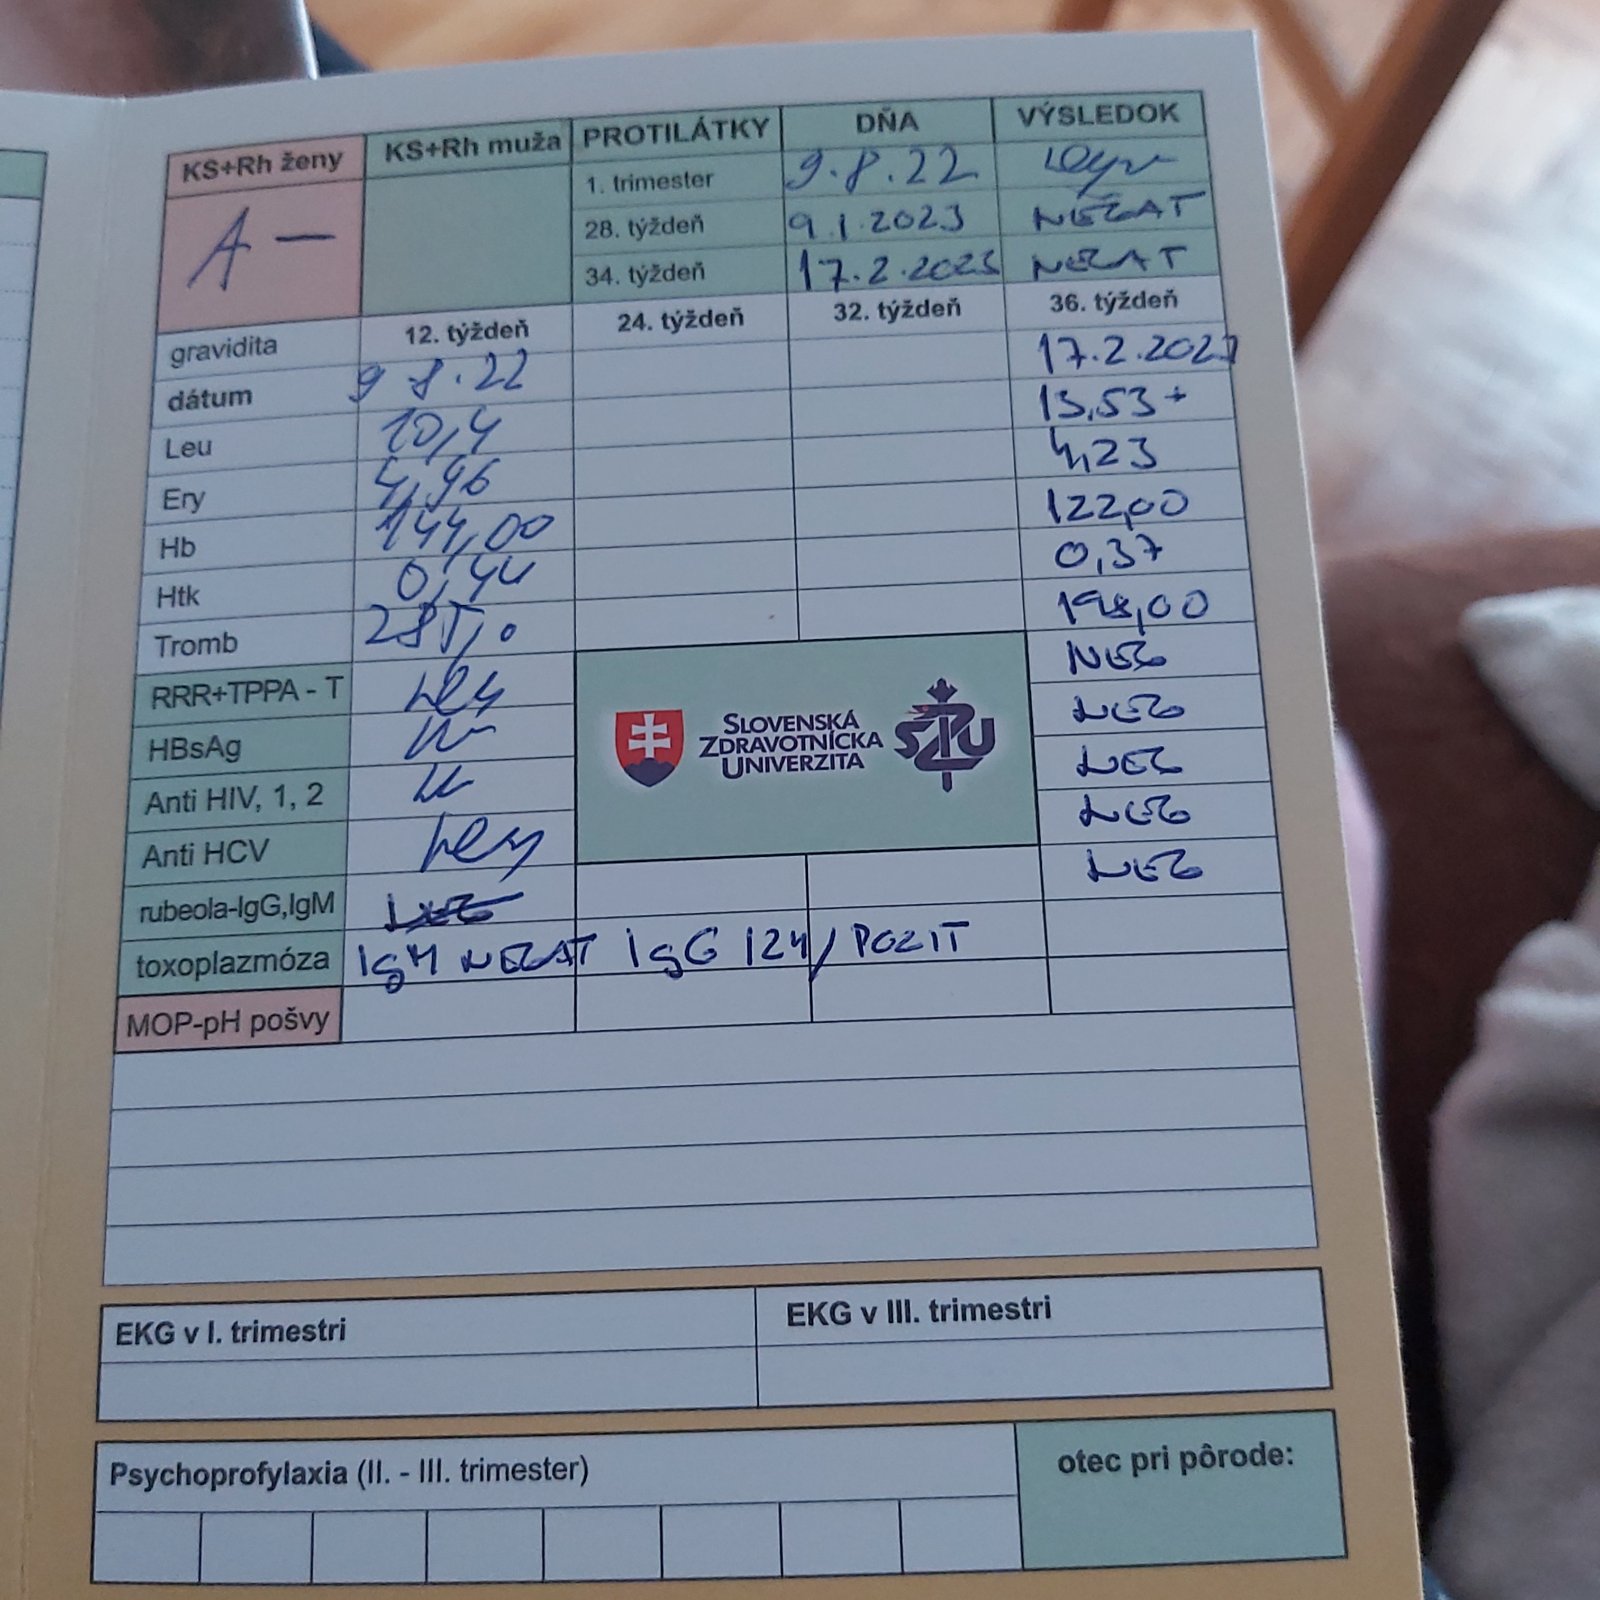 KS+Rh ženy KS+Rh muža PROTILÁTKY DŇA VÝSLEDOK
A - 1. trimester 9.8.22
28. týždeň 9.1.2023 NEGAT
34. týždeň 17.2.2023 NEGAT
gravidita 12. týždeň 24. týždeň 32. týždeň 36. týždeň
dátum 9.8.22 17.2.2023
Leu 10,4 13,53+
Ery 4,96 4,23
Hb 144,00 122,00
Htk 0,44 0,37
Tromb 285,0 198,00
RRR+TPPA - T neg NEG
HBsAg NEG
Anti HIV, 1, 2 NEG
Anti HCV neg NEG
rubeola-IgG,IgM NEG
toxoplazmóza IgM NEGAT IgG 124/ POZIT
MOP-pH pošvy
SLOVENSKÁ
ZDRAVOTNÍCKA
UNIVERZITA
SZU
EKG v I. trimestri EKG v III. trimestri
Psychoprofylaxia (II. - III. trimester) otec pri pôrode: